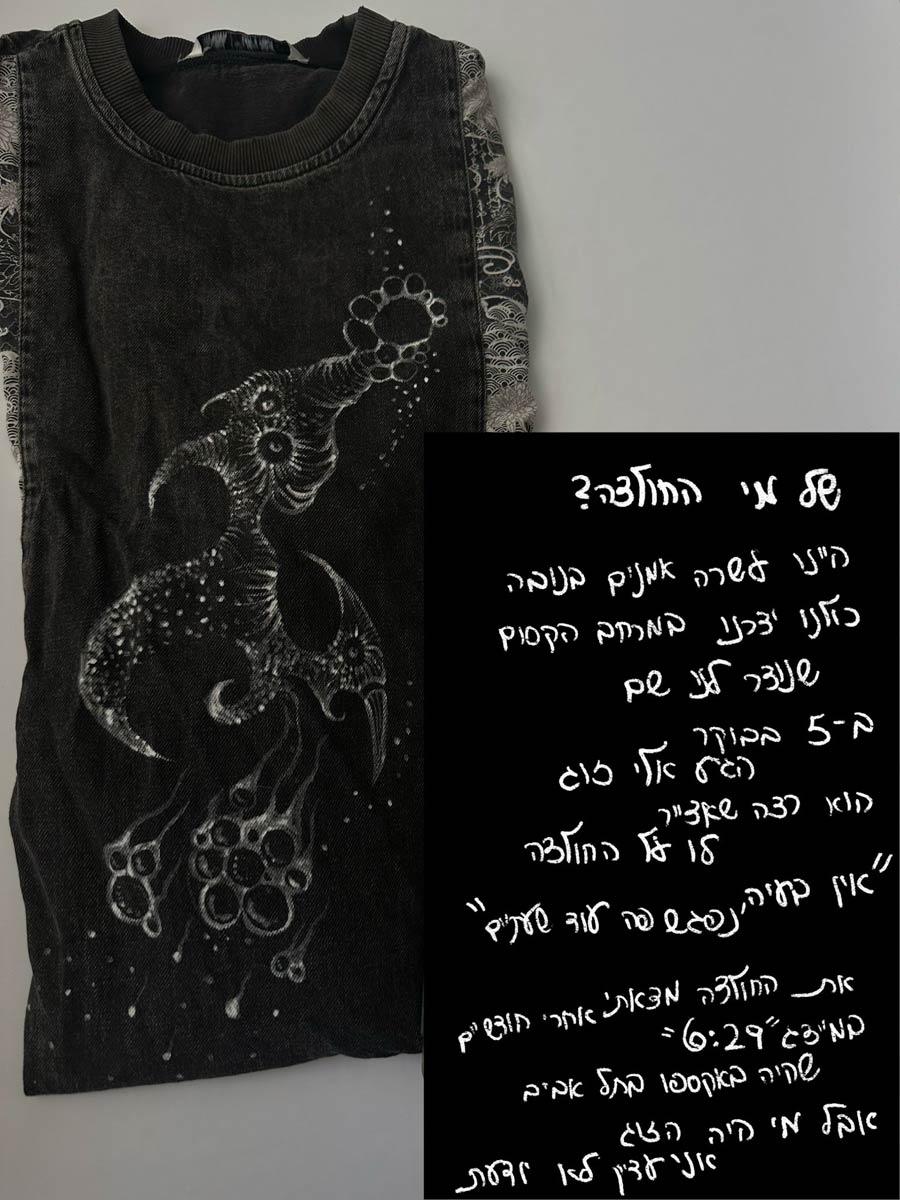 של מי החולצה?
היינו עשרה אמנים בנובה
כולנו יצרנו במרחב הקסום
שנוצר לנו שם
ב-5 בבוקר
הגיע אלי זוג
הוא רצה שאצייר
לו על החולצה
"אין בעיה, נפגש פה עוד שעתיים"
את החולצה מצאתי אחרי חודשיים
במיצג "6:29"
שהיה באקספו בתל אביב
אבל מי היה הזוג
אני עדיין לא יודעת